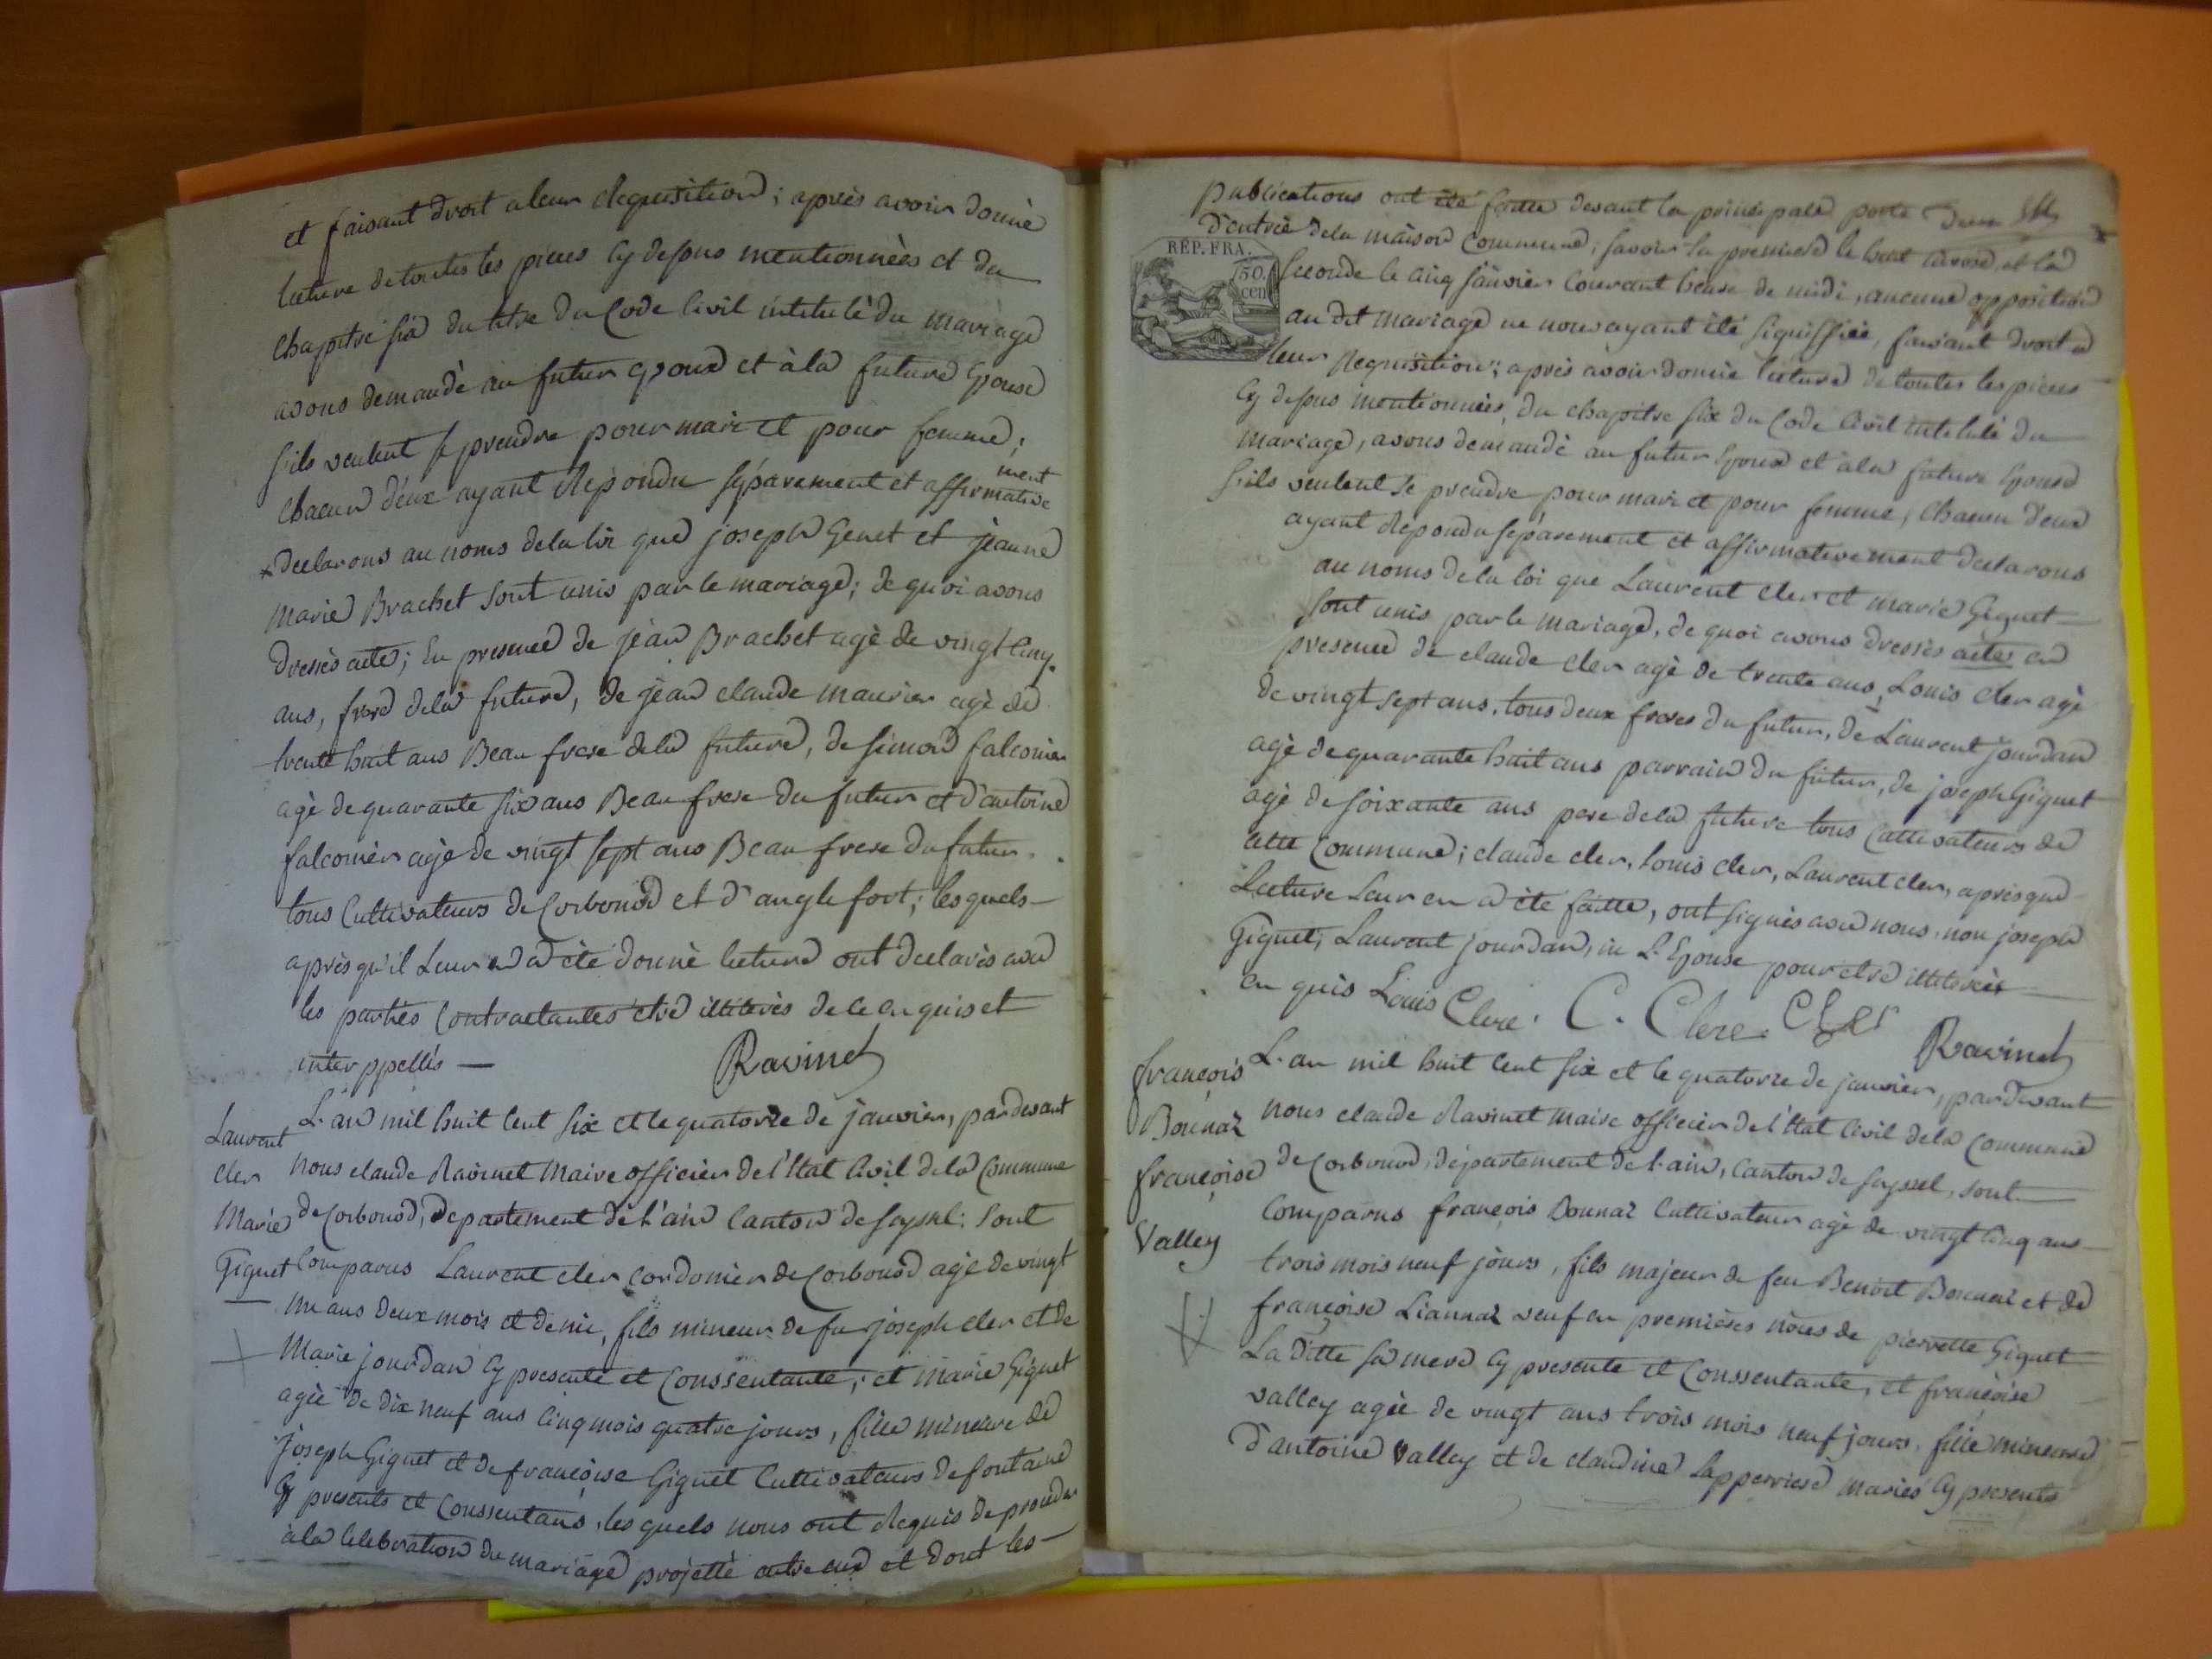 et faisant droit a leur Requisition; après avoir donné
lecture de toutes les pieces cy dessus mentionnèes et du
chapitre six du titre du Code Civil intitulé du mariage
avons demandé au futur epoux et à la future Epouse
s'ils veulent se prendre pour mari et pour femme;
chacun d'eux ayant Repondu séparement et affirmative
ment
declarons au noms de la loi que joseph Genet et jèanne
Marie Brachet sont unis par le mariage; de quoi avons
dressès acte; En presence de jèan Brachet agè de vingt cinq
ans, frere dela future, de jèan claude maurier agè de
trente huit ans Beau frere dela future, de simon falconier
agè de quarante six ans Beau frere du futur et d'antoine
falconier agè de vingt sept ans Beau frere du futur
tous Cultivateurs de Corbonod et d'anglefort; lesquels
après qu'il Leur en a ètè donnè lecture ont declarès avec
les parties Contractantes être illiterès de ce enquis et
interppellés —
Ravinet
Laurent
cler
Marie
Giguet
L'an mil huit cent six et le quatorze de janvier, pardevant
nous claude Ravinet Maire officier de l'Etat Civil dela Commune
de Corbonod, Departement de l'ain Canton de seyssel; sont
Comparus Laurent cler cordonier de Corbonod agè de vingt
un ans deux mois et demie, fils mineur de fu joseph cler et de
Marie jourdan cy presente et Conssentante; et marie Giguet
agèe de dix neuf ans cinq mois quatre jours, fille mineure de
joseph Giguet et de françoise Giguet Cultivateurs de fontaine
cy presents et Conssentans, les quels nous ont Requis de proceder
à la celebration du mariage projettè entre eux et dont les —
publications ont été faitte devant la principale porte
d'entrèe dela maison Commune; savoir la premiere le huit nivose, et la
RÉP. FRA.
50
cen
seconde le cinq jànvier Courant heure de midi, aucune opposition
au dit mariage ne nous ayant été signiffièe, faisant droit a
leur Requisition; après avoir donnèe lecture de toutes les pieces
cy dessus mentionnèes, du chapitre six du Code Civil intitulé du
mariage, avons demandè au futur Epoux et à la future Epouse
s'ils veulent se prendre pour mari et pour femme, chacun d'eux
ayant Repondu séparement et affirmativement declarons
au noms de la loi que Laurent cler et marie Giguet
sont unis par le mariage, de quoi avons dressès actes en
presence de claude cler agè de trente ans, Louis cler agè
de vingt sept ans, tous deux freres du futur, de Laurent jourdan
agè de quarante huit ans parrain du futur, de joseph Giguet
agè de soixante ans pere dela future tous Cultivateurs de
cette Commune; claude cler, Louis cler, Laurent cler, après que
Lecture Leur en a ètè faitte, ont signès avec nous, non joseph
Giguet, Laurent jourdan, ni L'Epouse pour etre illiterès
en quis Louis Clere. C. Clere. Cler
Ravinet
françois
Bonnaz
françoise
Valley
L'an mil huit cent six et le quatorze de janvier, pardevant
nous claude Ravinet maire officier de l'Etat Civil dela Commune
de Corbonod, département de l'ain, Canton de seyssel, sont
Comparus françois Bonnaz Cultivateur agè de vingt cinq ans
trois mois neuf jours, fils majeur de feu Benoit Bonnaz et de
françoise Liannaz veuf en premières nòces de pierrette Giguet
La ditte sa mere cy presente et Conssentante, et françoise
valley agèe de vingt ans trois mois neuf jours, fille mineure
d'antoine Valley et de claudine Lapperriere mariès cy presents